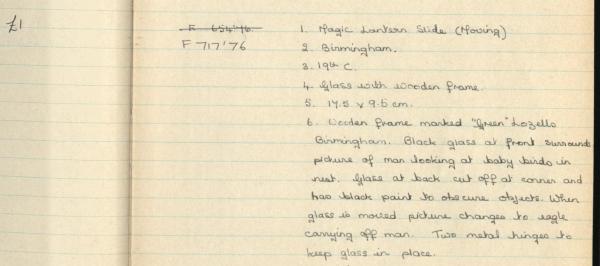 £1
F 654'76.
F 717'76
1. Magic Lantern Slide (Moving)
2. Birmingham.
3. 19th C.
4. Glass with wooden frame.
5. 17.5 x 9.5 cm.
6. Wooden frame marked "Green" Lozells
Birmingham. Black glass at front surrounds
picture of man looking at baby birds in
nest. Glass at back cut off at corner and
has black paint to obscure objects. When
glass is moved picture changes to eagle
carrying off man. Two metal hinges to
keep glass in place.